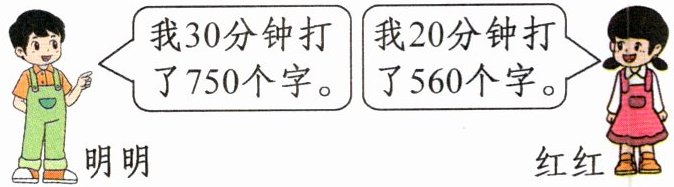 我30分钟打
了750个字。
我20分钟打
了560个字。
明明
红红